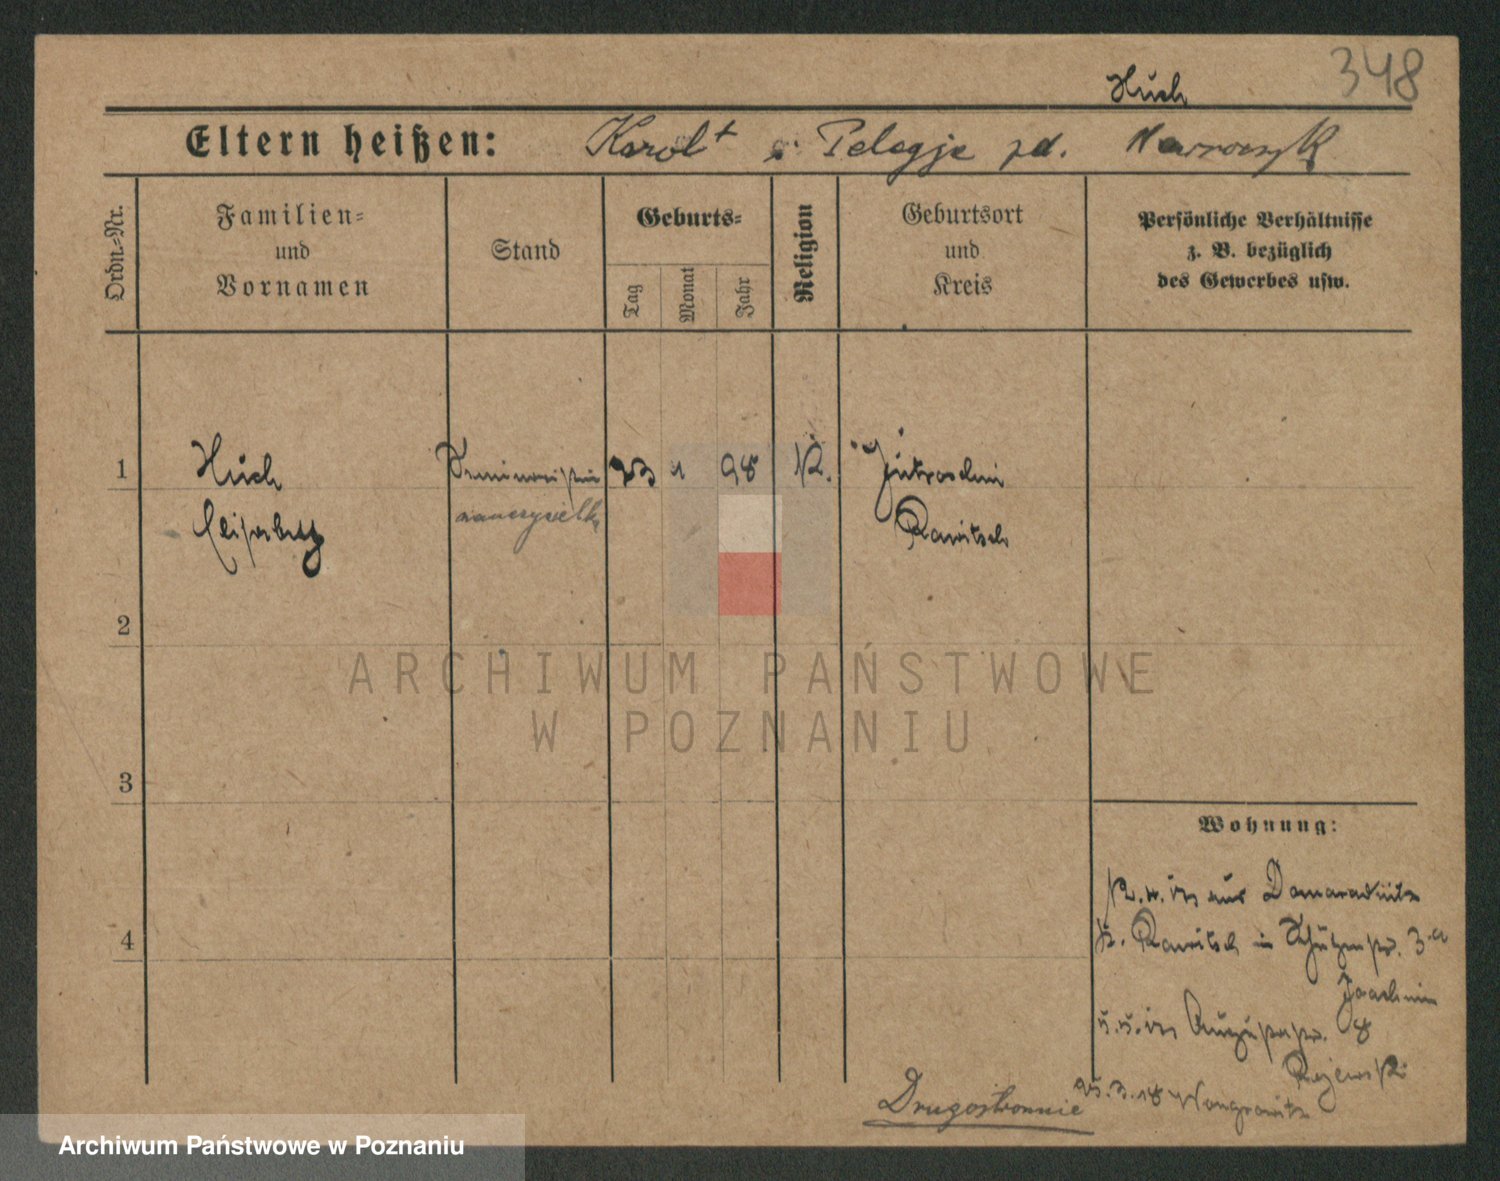 348
Huch
Eltern heißen: Karol + i Pelagja zd. Nawroczyk
Ordn.-Nr.
Familien-
und
Vornamen
Stand
Geburts-
Tag
Monat
Jahr
Religion
Geburtsort
und
Kreis
Persönliche Verhältnisse
z. B. bezüglich
des Gewerbes usw.
1 Huch Seminaristin 23 1 98 K. Jutroschin
Elisabeth nauczycielka Rawitsch
2
3
4
ARCHIWUM PAŃSTWOWE
W POZNANIU
Wohnung:
aus Damaradnitz
K. Rawitsch in Schützenstr. 3a
Joachim
Augustastr. 8
Rajewski
25.3.18 Wongrowitz
Drugostronnie
Archiwum Państwowe w Poznaniu